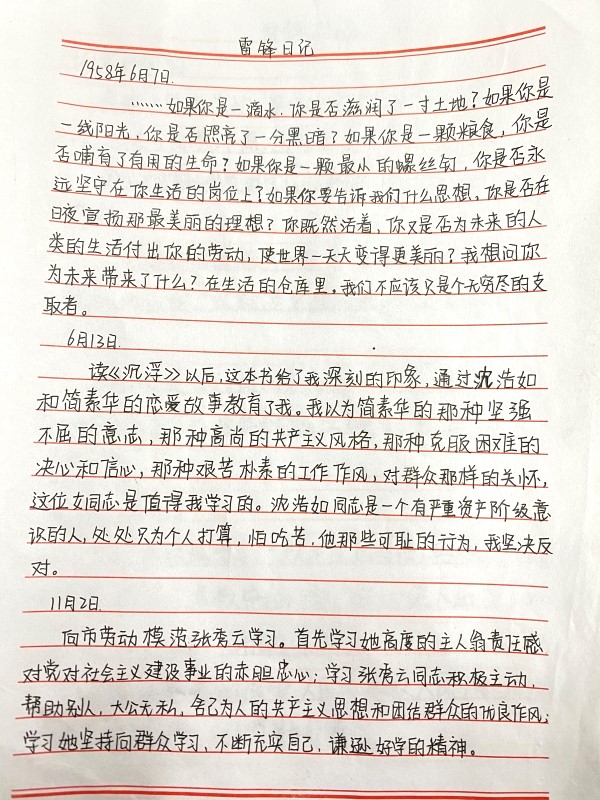 雷锋日记
1958年6月7日.
……如果你是一滴水,你是否滋润了一寸土地?如果你是
一线阳光,你是否照亮了一分黑暗?如果你是一颗粮食,你是
否哺育了有用的生命?如果你是一颗最小的螺丝钉,你是否永
远坚守在你生活的岗位上?如果你要告诉我们什么思想,你是否在
日夜宣扬那最美丽的理想?你既然活着,你又是否为未来的人
类的生活付出你的劳动,使世界一天天变得更美丽?我想问你
为未来带来了什么?在生活的仓库里,我们不应该只是个无穷尽的支
取者。
6月13日.
读《沉浮》以后,这本书给了我深刻的印象,通过沈浩如
和简素华的恋爱故事教育了我。我以为简素华的那种坚强
不屈的意志,那种高尚的共产主义风格,那种克服困难的
决心和信心,那种艰苦朴素的工作作风,对群众那样的关怀,
这位女同志是值得我学习的。沈浩如同志是一个有严重资产阶级意
识的人,处处只为个人打算,怕吃苦,他那些可耻的行为,我坚决反
对。
11月2日.
向市劳动模范张秀云学习。首先学习她高度的主人翁责任感
对党对社会主义建设事业的赤胆忠心;学习张秀云同志积极主动,
帮助别人,大公无私,舍己为人的共产主义思想和团结群众的优良作风;
学习她坚持向群众学习,不断充实自己,谦逊好学的精神。